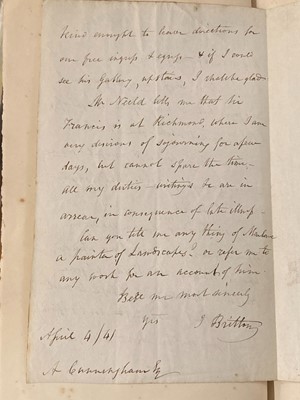 kind enough to leave directions for
our free ingress & egress – & if I could
see his gallery, upstairs, I shall be glad
Mr Neeld tells me that Sir
Francis is at Richmond, where I am
very desirous of sojourning for a few
days, but cannot spare the time –
all my duties – writings be are in
arrear, in consequence of late illness.
Can you tell me any thing of
a painter of Landscapes? or refer me to
any work for an account of him
Belie me most sincerely
Yrs J Britton
April 4/41
A Cunningham Esq